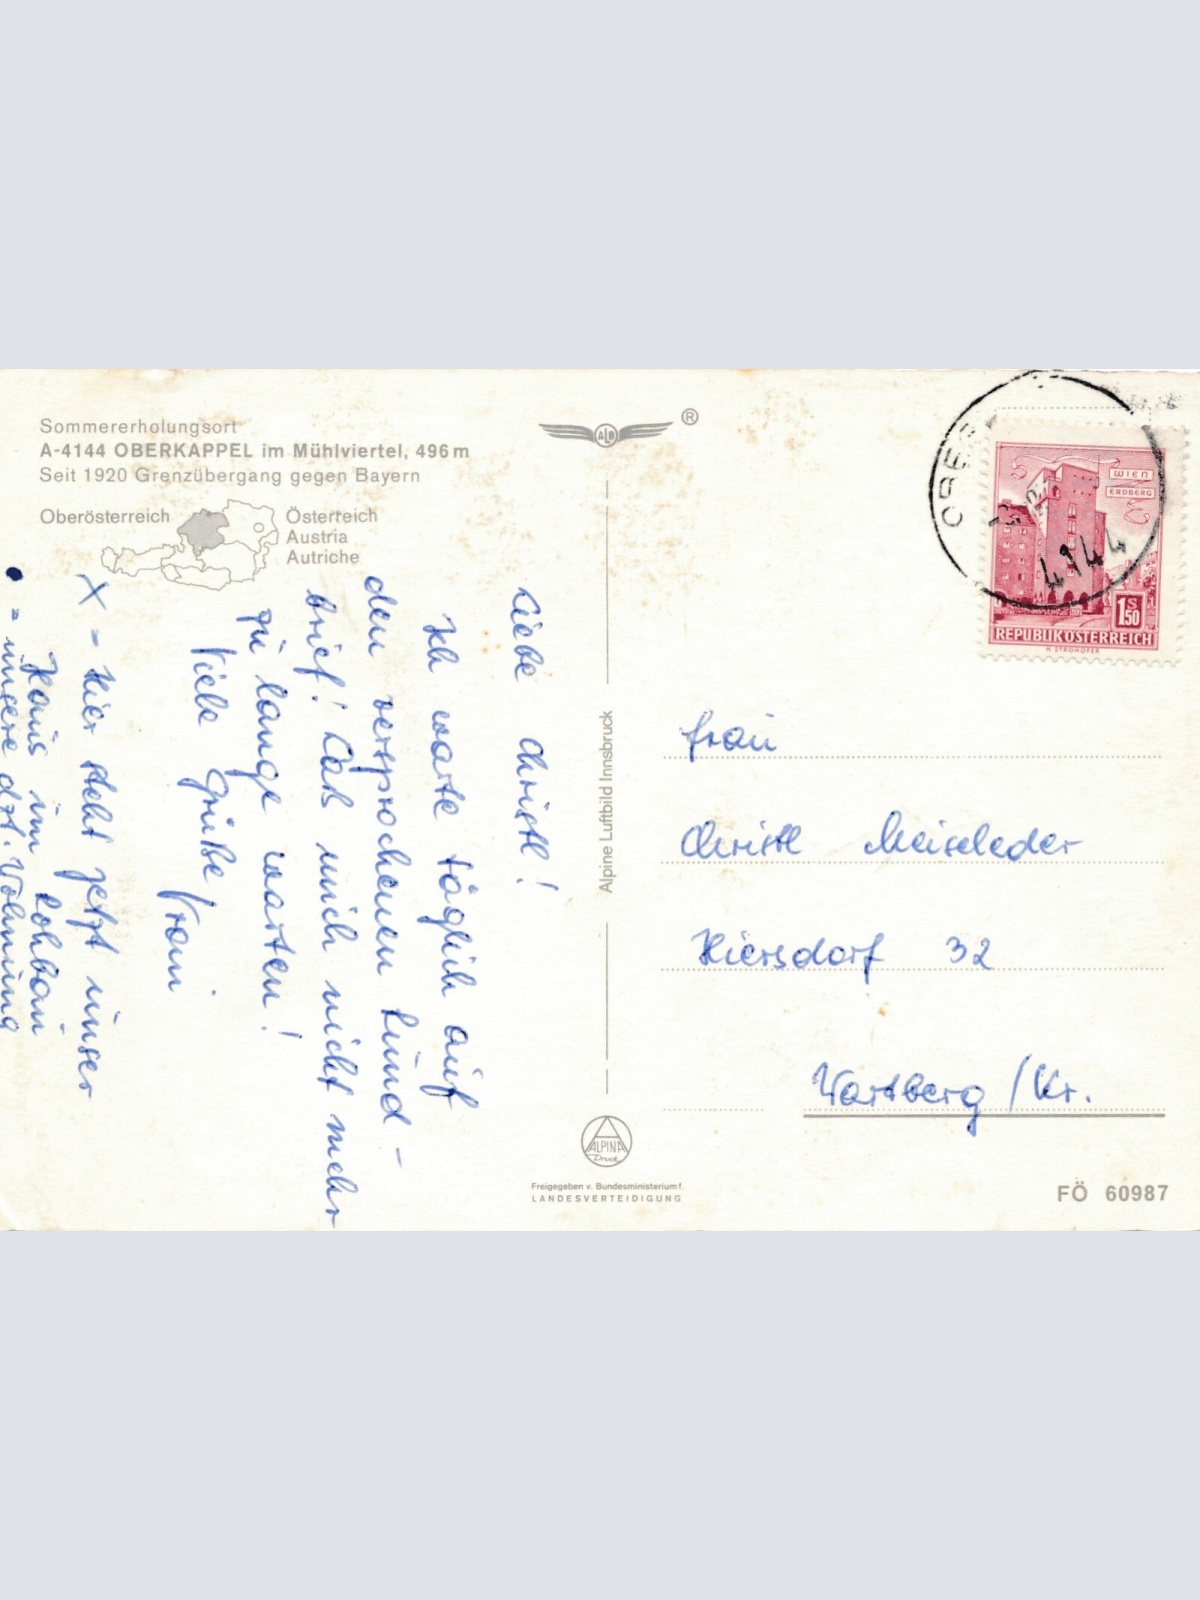 Sommererholungsort
A-4144 OBERKAPPEL im Mühlviertel, 496 m
Seit 1920 Grenzübergang gegen Bayern
Oberösterreich
Österreich
Austria
Autriche
Liebe Christl!
Ich warte täglich auf
den versprochenen Rund-
brief! Laß mich nicht mehr
zu lange warten!
Viele Grüße
X - Hier steht jetzt unser
Haus im Rohbau
• = unsere dzt. Wohnung
ALB
®
Alpine Luftbild Innsbruck
ALPINA
Druck
Freigegeben v. Bundesministerium f.
LANDESVERTEIDIGUNG
WIEN
ERDBERG
1S50
REPUBLIK ÖSTERREICH
H. STROHOFER
OBER
4144
Frau
Christl Meiseleder
Hiersdorf 32
Wartberg / Kr.
FÖ 60987